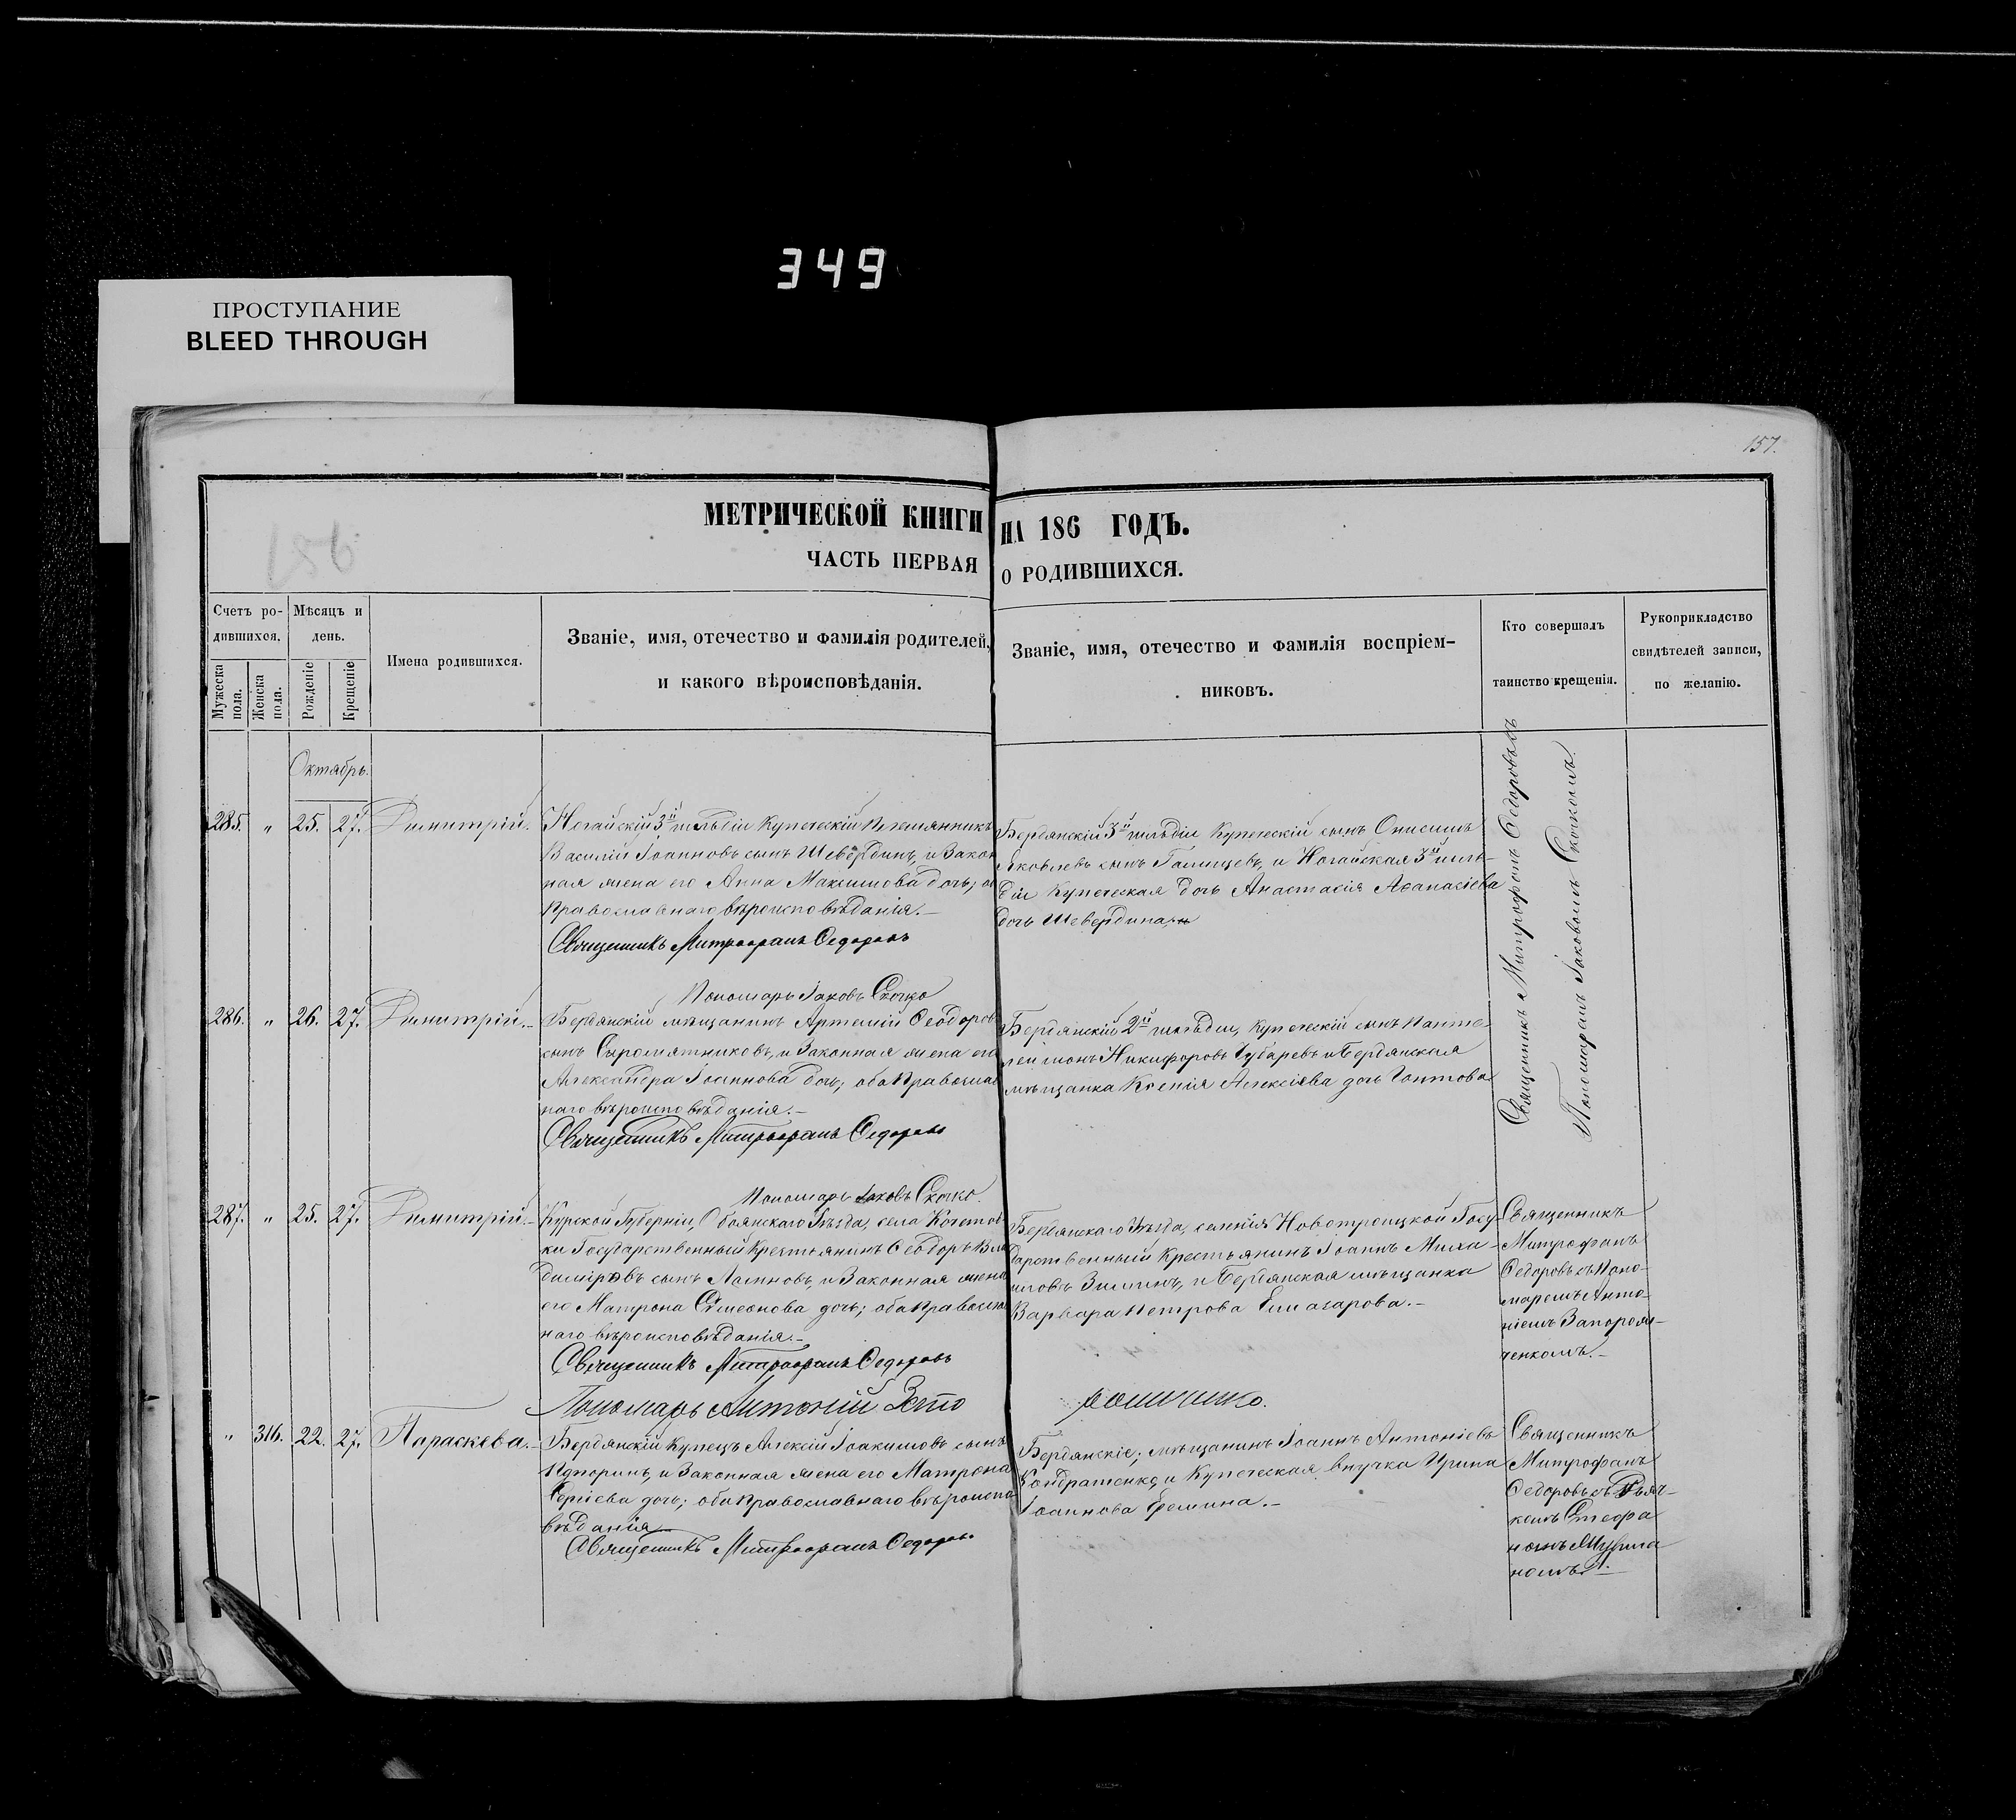 349
ПРОСТУПАНИЕ
BLEED THROUGH
157.
156
МЕТРИЧЕСКОЙ КНИГИ НА 186 ГОДЪ.
ЧАСТЬ ПЕРВАЯ О РОДИВШИХСЯ.
Счетъ ро-
дившихся.
Мужеска
пола.
Женска
пола.
Мѣсяцъ и
день.
Рожденіе
Крещеніе
Имена родившихся.
Званіе, имя, отечество и фамилія родителей,
и какого вѣроисповѣданія.
Званіе, имя, отечество и фамилія воспріем-
никовъ.
Кто совершалъ
таинство крещенія.
Рукоприкладство
свидѣтелей записи,
по желанію.
Октябрь.
285. " 25. 27. Димитрій.
Ногайскій 3й гильдіи Купеческій Племянникъ
Василій Іоанновъ сынъ Шевердинъ, и Закон
ная жена его Анна Максимова дочь; об
Православнаго вѣроисповѣданія.-
Священникъ Митрофанъ Ѳедоровъ
Пономарь Іаковъ Скочко
Бердянскій 3й гильдіи Купеческій сынъ Онисимъ
Яковлевъ сынъ Галищевъ, и Ногайская 3й гиль-
діи Купеческая дочь Анастасія Аѳанасіева
дочь Шевердина.
Священникъ Митрофанъ Ѳедоровъ съ
Пономаремъ Іаковомъ Скочкомъ.
286. " 26. 27. Димитрій.-
Бердянскій мѣщанинъ Артемій Ѳеодоров
сынъ Сыромятниковъ, и Законная жена его
Александра Іоаннова дочь; оба Православ
наго вѣроисповѣданія.-
Священникъ Митрофанъ Ѳедоровъ
Пономарь Іаковъ Скочко.
Бердянскій 2й гильдіи, купеческій сынъ Панте-
леймонъ Никифоровъ Губаревъ и Бердянская
мѣщанка Ксенія Алексіева дочь
287. " 25. 27. Димитрій.-
Курской Губерніи, Обоянскаго Уѣзда, села Кочетов
ки Государственный Крестьянинъ Ѳеодоръ Вла
диміровъ сынъ Лаиновъ, и Законная жена
его Матрона Симеонова дочь; оба Православ
наго вѣроисповѣданія.-
Священникъ Митрофанъ Ѳедоровъ
Пономарь Антоній
Бердянскаго Уѣзда, селенія Новотроицкой Госу-
дарственный Крестьянинъ Іоаннъ Миха-
иловъ Зиминъ, и Бердянская мѣщанка
Варвара Петрова Елизарова.-
Священникъ
Митрофанъ
Ѳедоровъ съ Поно-
маремъ Анто-
ніемъ Запорож-
ченкомъ.-
" 316. 22. 27. Параскева.-
Бердянскій Купецъ Алексій Іоакимовъ сынъ
и Законная жена его Матрона
Сергіева дочь; оба Православнаго вѣроиспо
вѣданія
Священникъ Митрофанъ Ѳедоровъ
Бердянскіе; мѣщанинъ Іоаннъ Антоніевъ
Кондратенко, и Купеческая внучка Ирина
Іоаннова Еремина.-
Священникъ
Митрофанъ
Ѳедоровъ съ Дьяч-
комъ Стефа
номъ
номъ.-